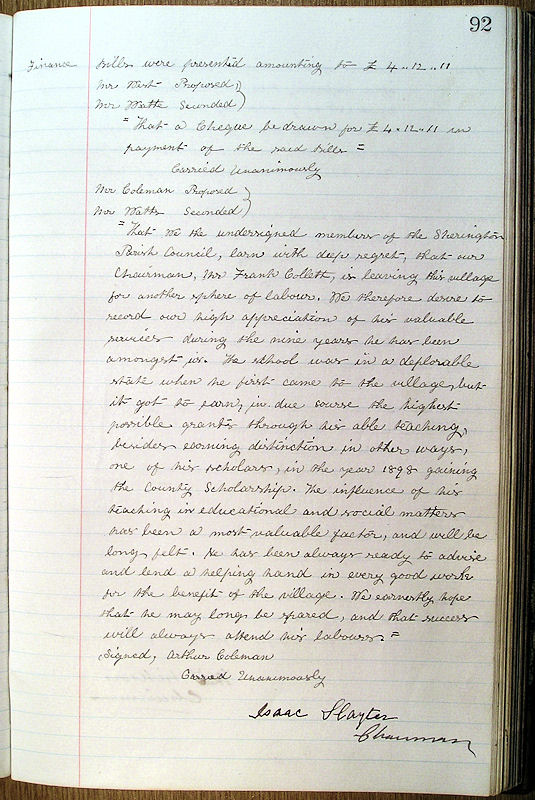 92
Finance Bills were presented amounting to £ 4..12..11
Mr West Proposed,)
Mr Watts Seconded)
"That a Cheque be drawn for £ 4.12.11 in
payment of the said Bills"
Carried Unanimously
Mr Coleman Proposed)
Mr Watts Seconded)
"That We the undersigned members of the Sherington
Parish Council, learn with deep regret, that our
Chairman, Mr Frank Collett, is leaving this village
for another sphere of labour. We therefore desire to
record our high appreciation of his valuable
services during the nine years he has been
amongst us. The school was in a deplorable
state when he first came to the village, but
it got to earn, in due course the highest
possible grants through his able teaching,
besides earning distinction in other ways,
one of his scholars, in the year 1898 gaining
the County Scholarship. The influence of his
teaching in educational and social matters
has been a most valuable factor, and will be
long felt. He has been always ready to advise
and lend a helping hand in every good work
for the benefit of the village. We earnestly hope
that he may long be spared, and that success
will always attend his labours."
Signed, Arthur Coleman
Carried Unanimously
Isaac Slayter
Chairman